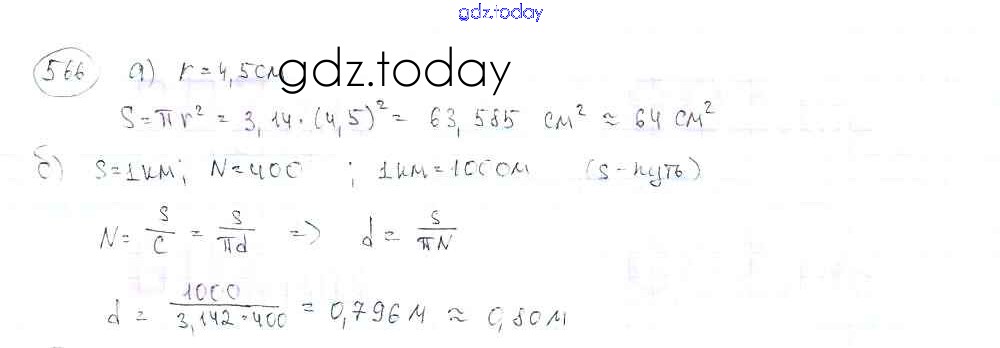 gdz.today
566 а) r = 4,5см
gdz.today
S = πr² = 3,14 · (4,5)² = 63,585 см² ≈ 64 см²
б) S = 1км; N = 400 ; 1км = 1000м (s - путь)
N = s/C = s/πd => d = s/πN
d = 1000/3,142·400 = 0,796м ≈ 0,80м